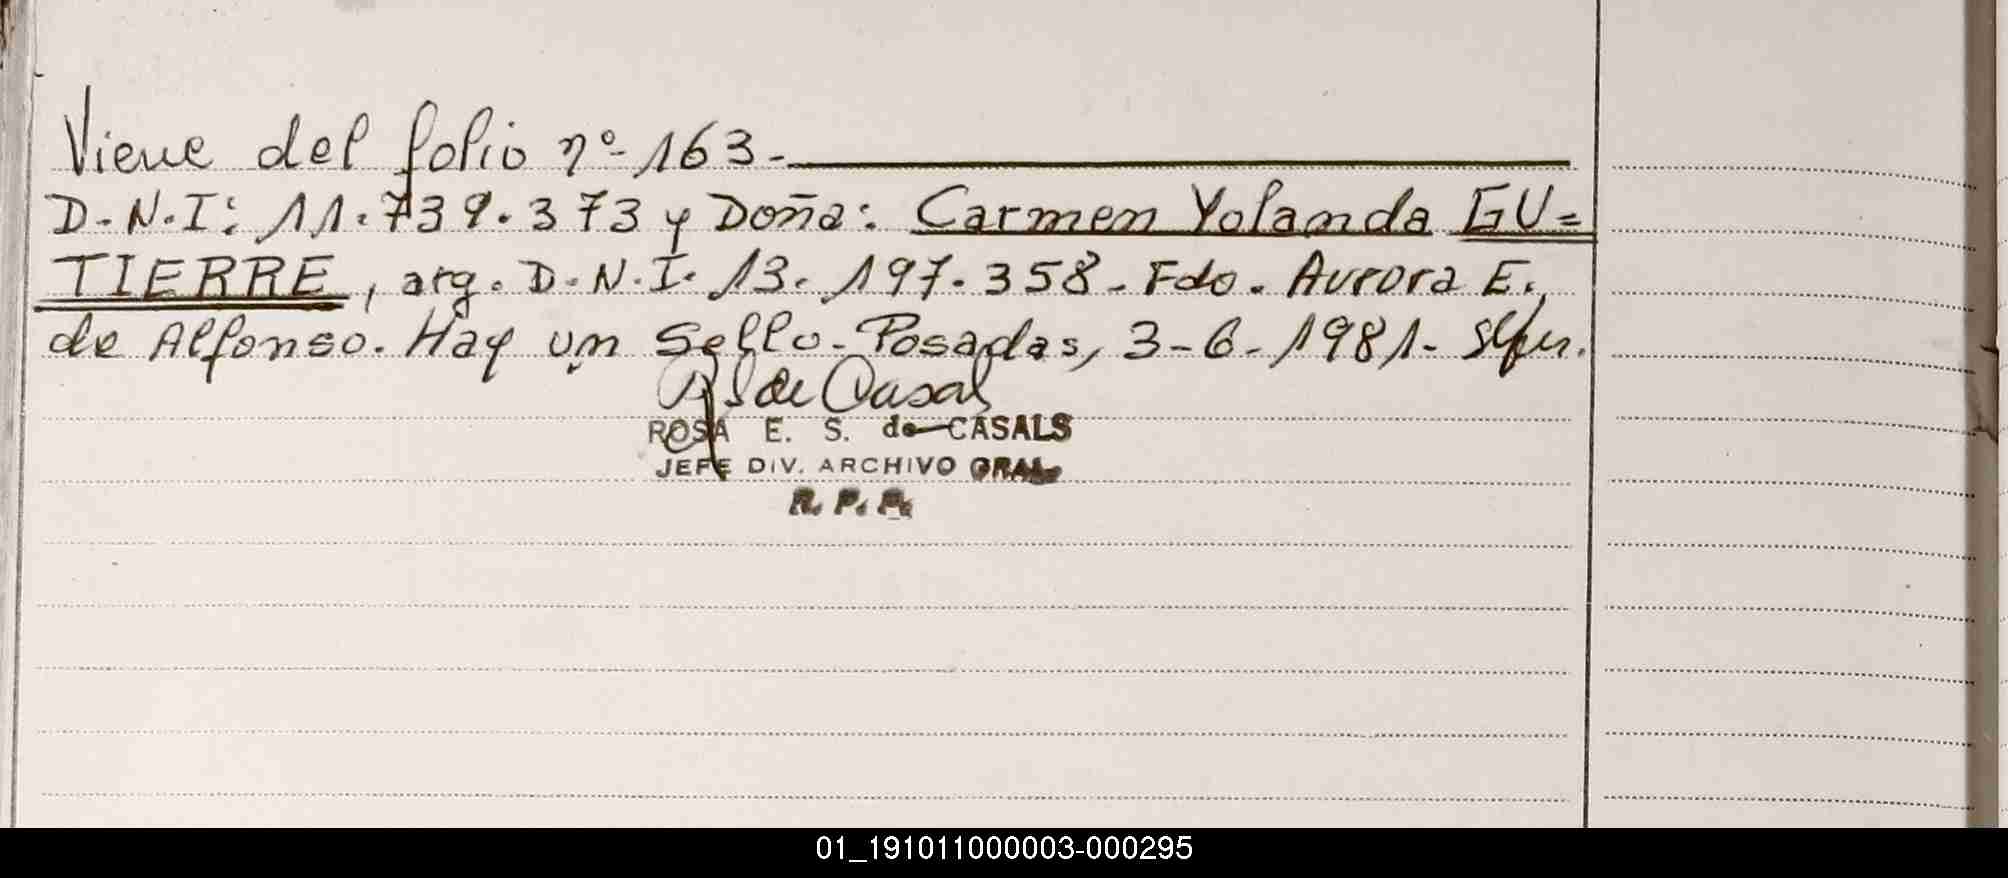 Viene del folio nº 163-
D.N.I: 11.739.373 y Doña: Carmen Yolanda GU=
TIERRE, arg. D.N.I. 13.197.358-Fdo. Aurora E.
de Alfonso. Hay un Sello-Posadas, 3-6-1981-
de Casal
ROSA E. S. de CASALS
JEFE DIV. ARCHIVO GRAL.
R. P. P.
01_191011000003-000295